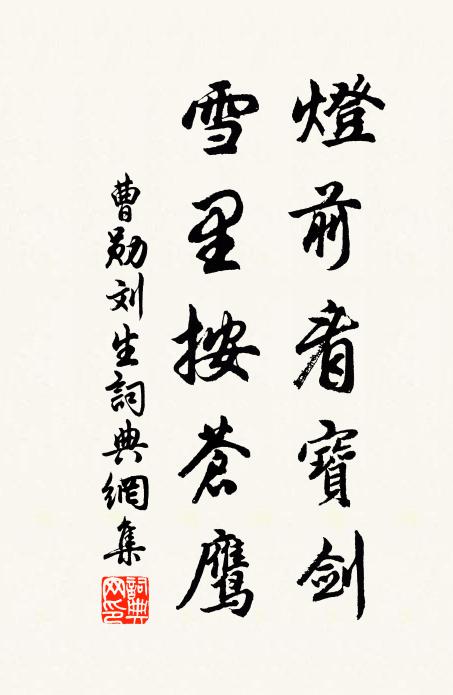 燈前看寶劍
雪里按蒼鷹
曹勛刘生詞典網集
詞典网印